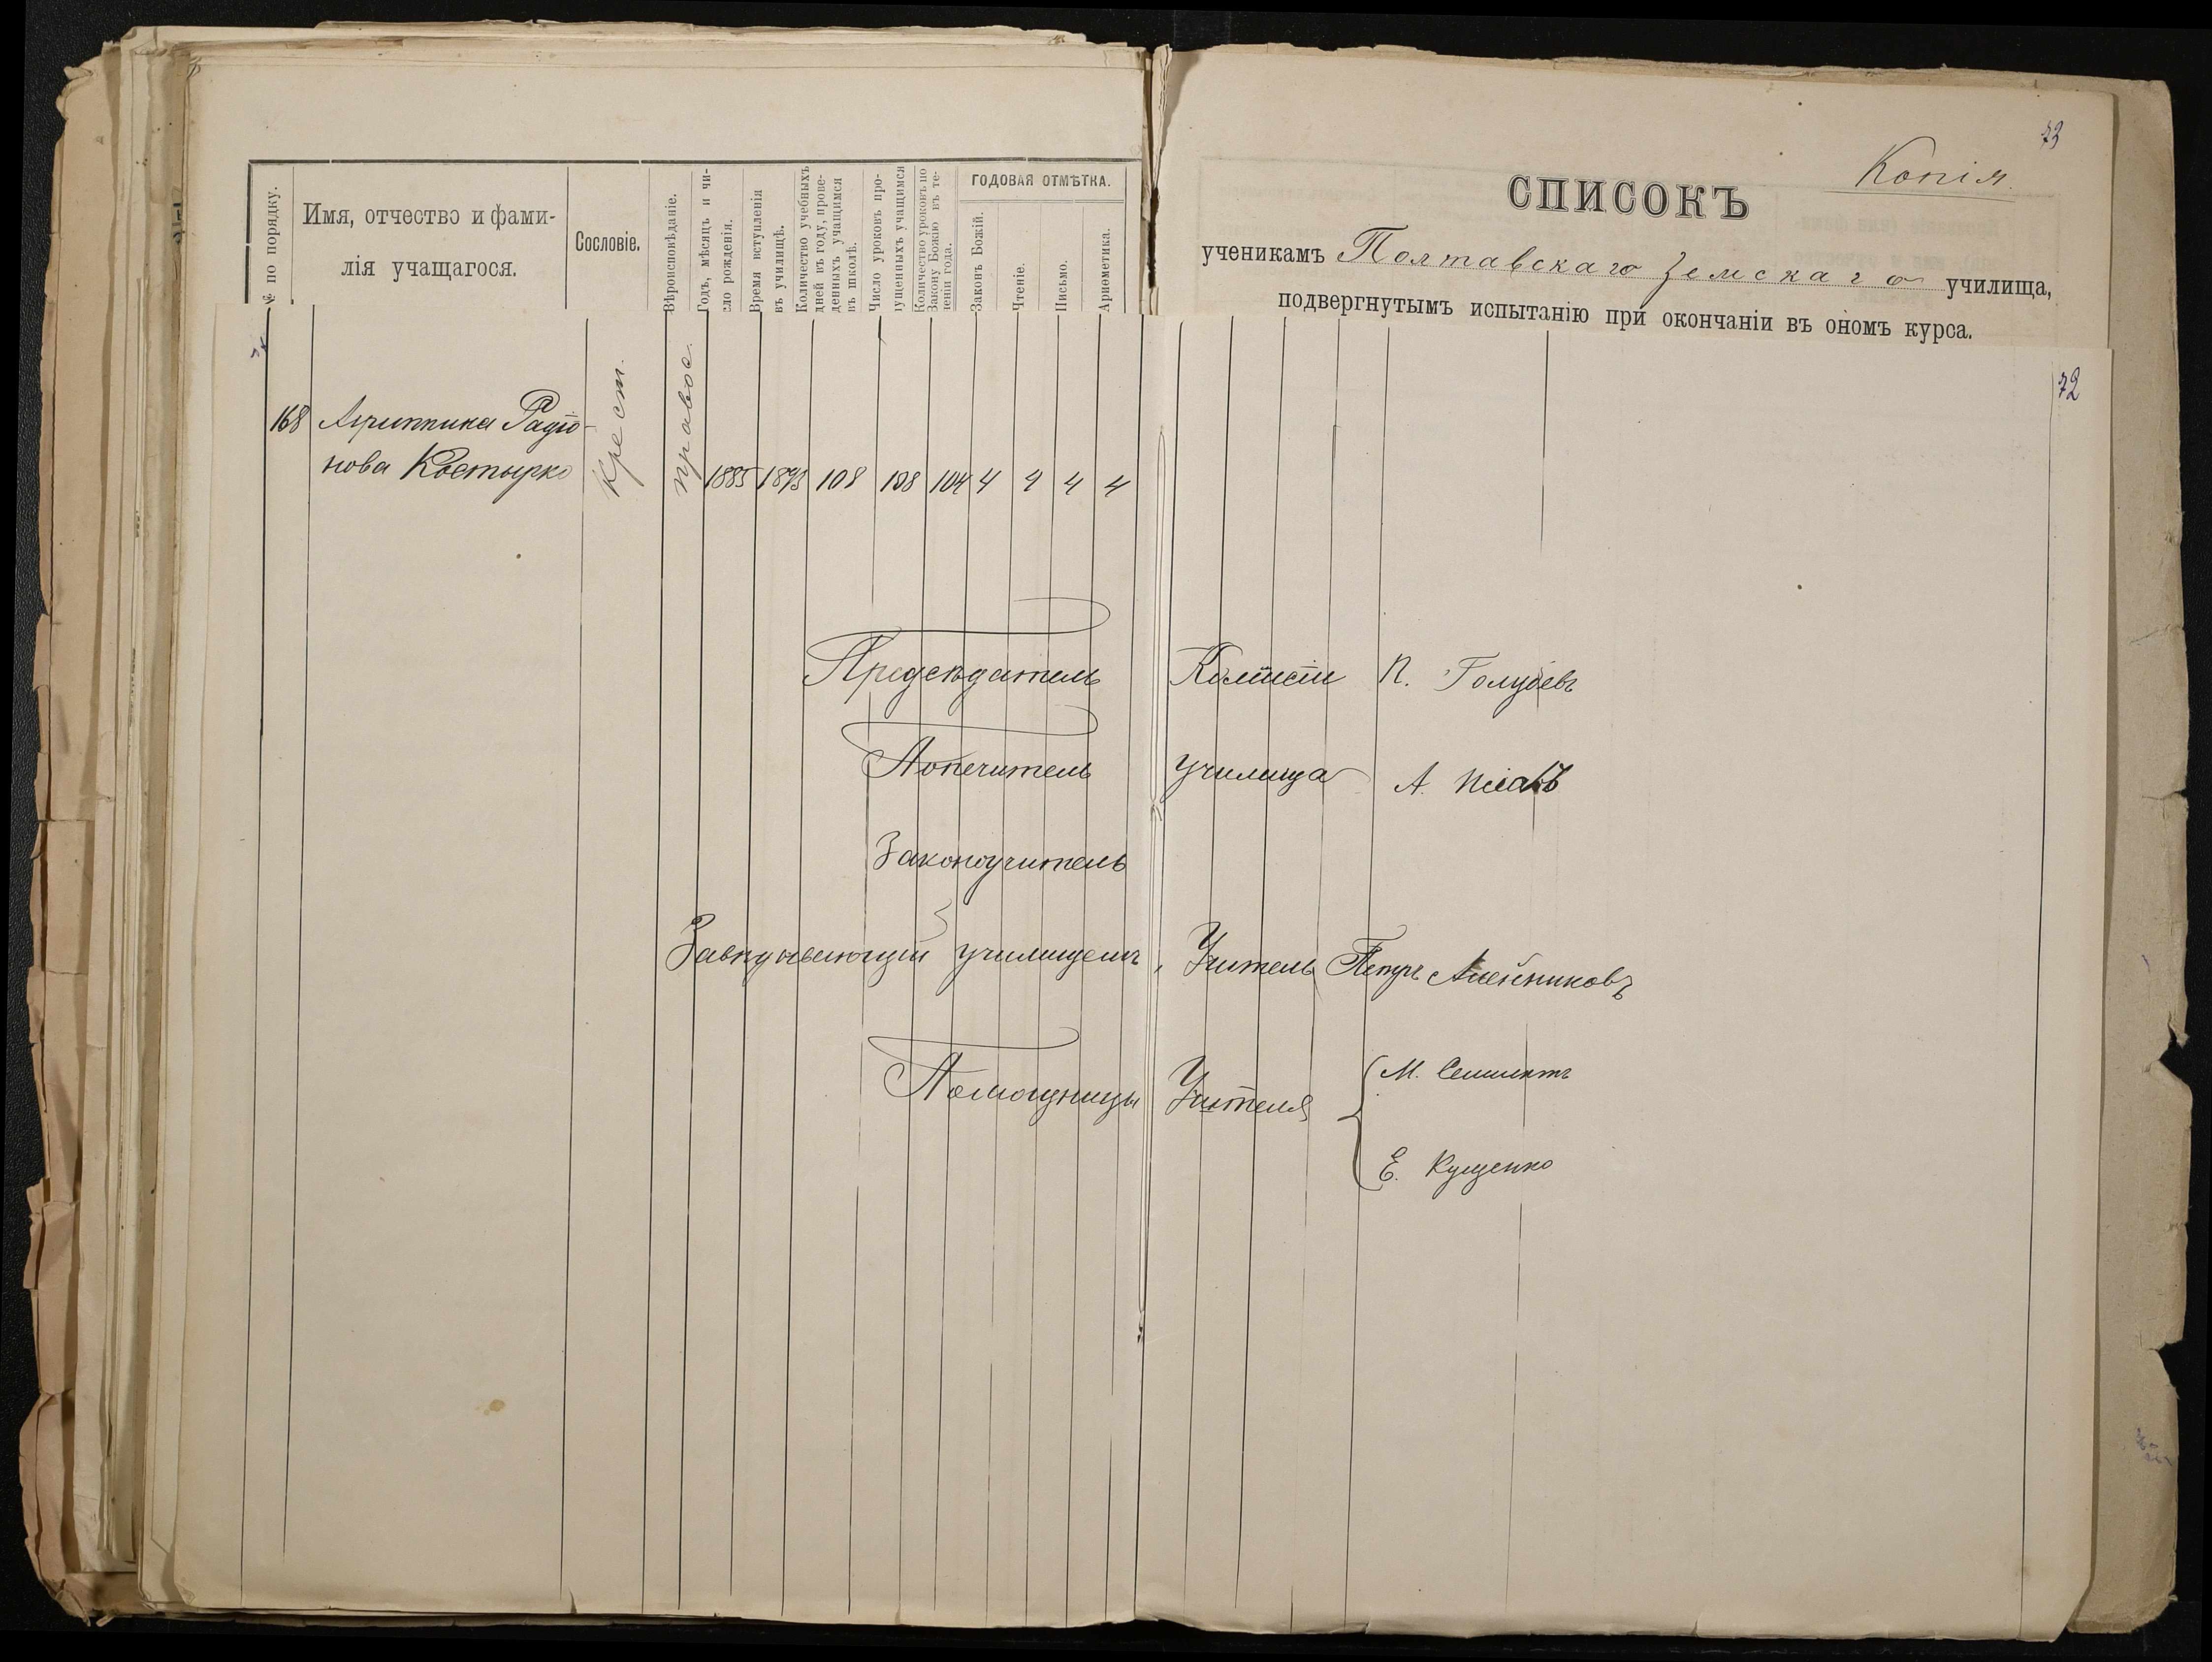 73
Копія.
СПИСОКЪ
ученикамъ Полтавскаго Земскаго училища,
подвергнутымъ испытанію при окончаніи въ ономъ курса.
72
№ по порядку.
Имя, отчество и фами-
лія учащагося.
Сословіе.
Вѣроисповѣданіе.
Годъ, мѣсяцъ и чи-
сло рожденія.
Время вступленія
въ училищѣ.
Количество учебныхъ
дней въ году, прове-
денныхъ учащимся
въ школѣ.
Число уроковъ про-
пущенныхъ учащимся
Количество уроковъ по
Закону Божію въ те-
ченіи года.
ГОДОВАЯ ОТМѢТКА.
Законъ Божій.
Чтеніе.
Письмо.
Ариѳметика.
168 Агриппина Радіо-
нова Костырко
Крест.
правос.
1885 1893 108 108 104 4 4 4 4
Предсѣдатель Комисіи П. Голубевъ
Попечитель училища А.
Законоучитель
Завѣдывающій училищемъ, Учитель Петръ Алейниковъ
Помощницы Учителя
М.
Е. Кущенко